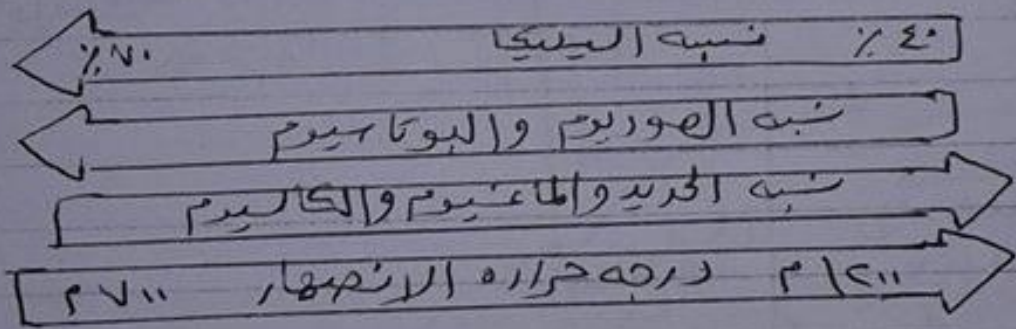 ٤٠ ٪ نسبه السيليكا ٧٠ ٪
نسبه الصوديوم والبوتاسيوم
نسبه الحديد والماغنسيوم والكالسيوم
١٢٠٠ م درجه حراره الانصهار ٧٠٠ م